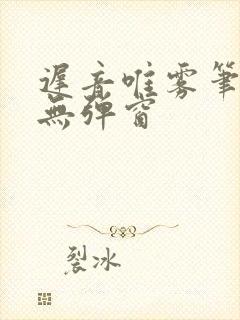 遲音唯雾筆
無弹窗
裂冰